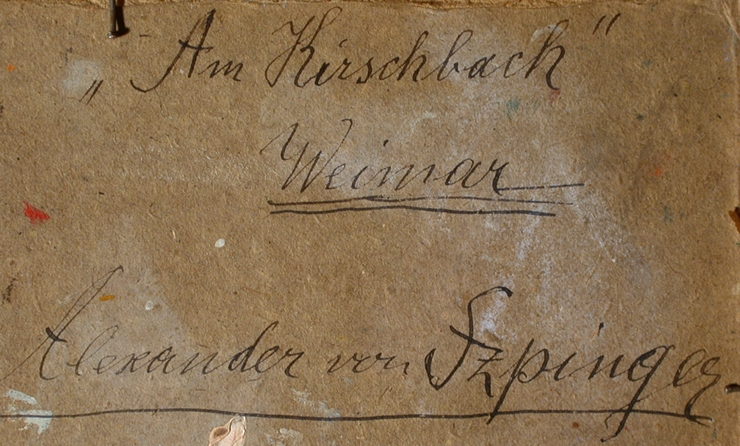 „Am Kirschbach"
Weimar
Alexander von Szpinger.